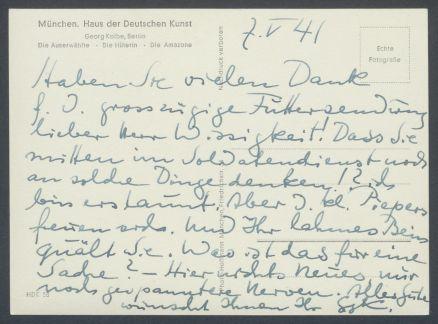 München. Haus der Deutschen Kunst
Georg Kolbe, Berlin
Die Auserwählte - Die Hüterin - Die Amazone
7. V 41
Echte
Fotografie
Nachdruck verboten
Haben Sie vielen Dank
f. I. grosszügige Futtersendung
lieber Herr Wissigkeit! Dass Sie
mitten im Soldatendienst noch
an solche Dinge denken!
bin erstaunt. Aber I. kl. Piepers
freuen sich. Und Ihr lahmes Bein
quält Sie. Was ist das für eine
Sache? - Hier nichts Neues nur
noch gespanntere Nerven. Alles Gute
wünscht Ihnen Ihr